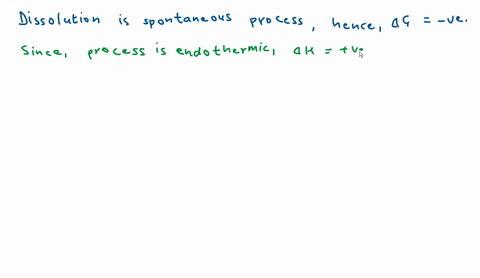 Dissolution is spontaneous process, hence, ΔG = -ve.
Since, process is endothermic, ΔH = +ve